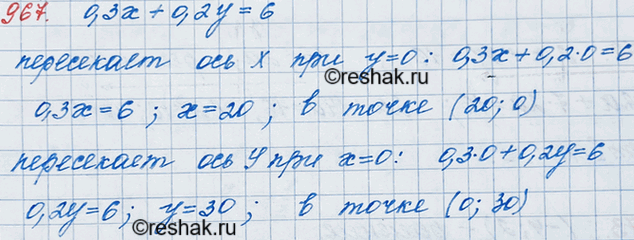 967. 0,3x + 0,2y = 6
пересекает ось X при y=0: 0,3x + 0,2·0 = 6
©reshak.ru
0,3x = 6; x = 20; в точке (20; 0)
пересекает ось y при x=0: 0,3·0 + 0,2y = 6
0,2y = 6; y = 30; в точке (0; 30)
©reshak.ru